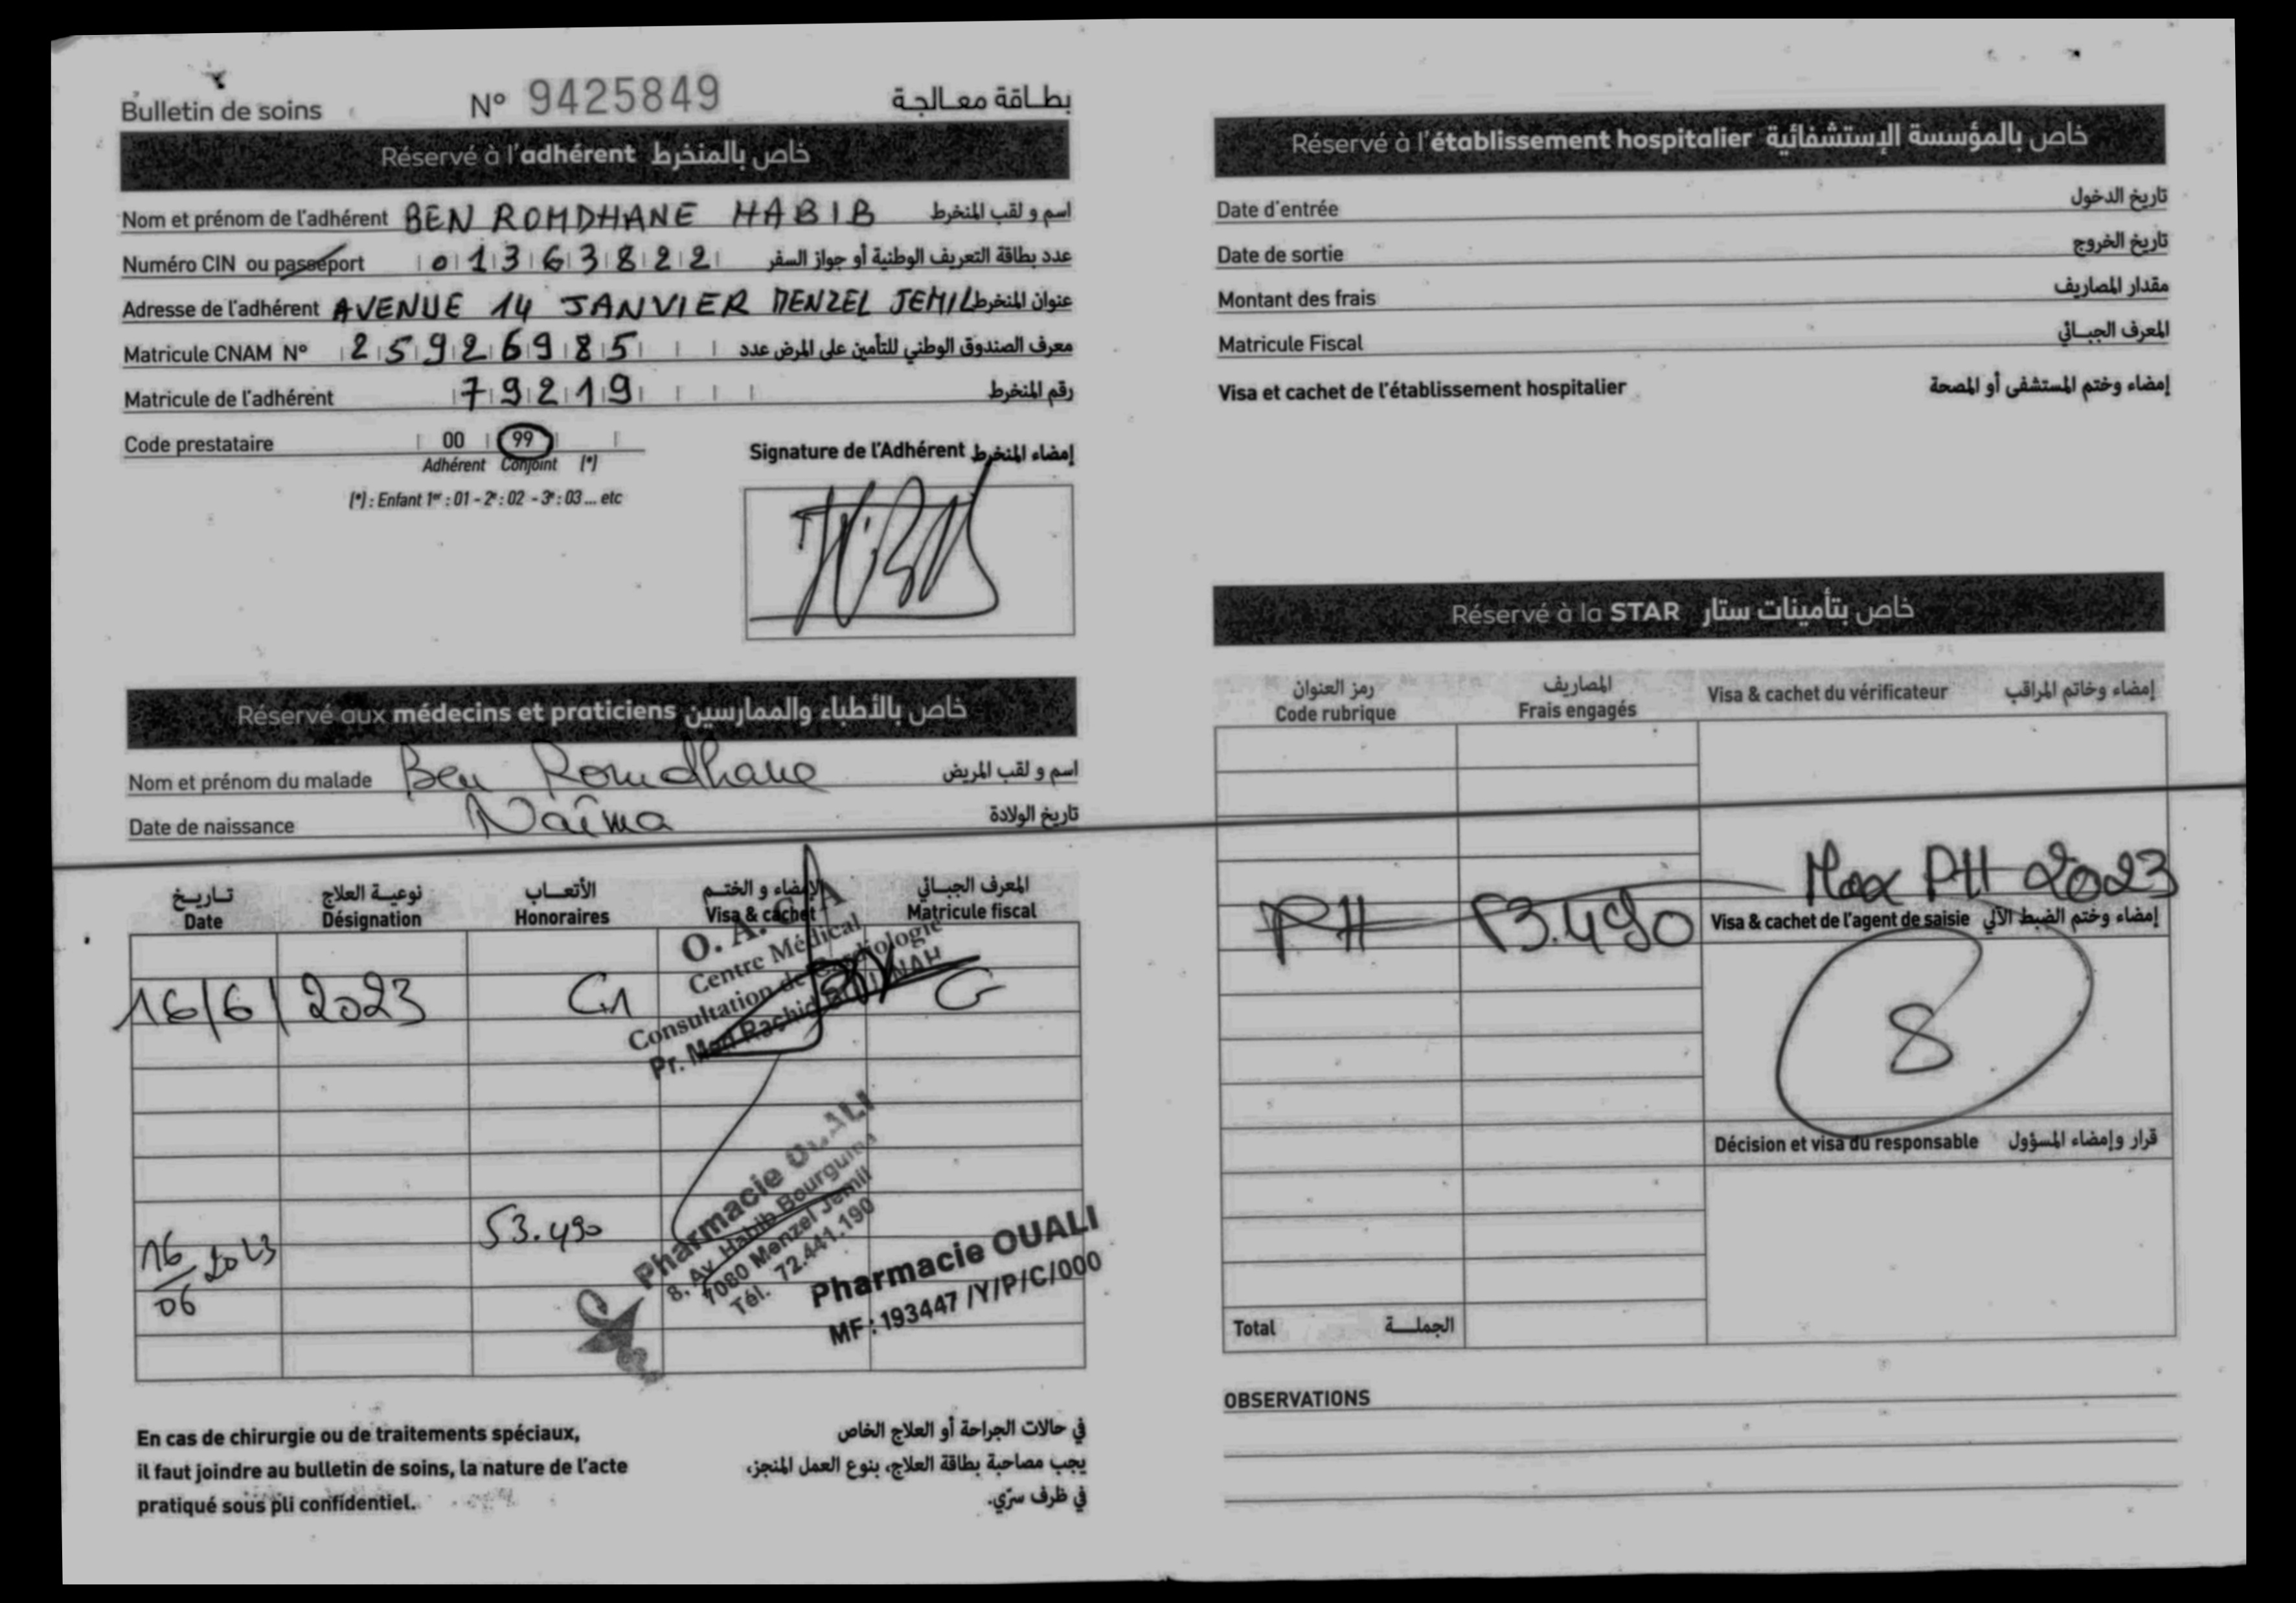 Bulletin de soins N° 9425849 بطاقة معالجة
Réservé à l'adhérent خاص بالمنخرط
Nom et prénom de l'adhérent BEN ROMDHANE HABIB اسم و لقب المنخرط
Numéro CIN ou passeport 01363822 عدد بطاقة التعريف الوطنية أو جواز السفر
Adresse de l'adhérent AVENUE 14 JANVIER MENZEL JEMIL عنوان المنخرط
Matricule CNAM N° 25926985 معرف الصندوق الوطني للتأمين على المرض عدد
Matricule de l'adhérent 79219 رقم المنخرط
Code prestataire 00 99
Adhérent Conjoint (*)
(*) : Enfant 1er : 01 - 2e : 02 - 3e : 03 ... etc
Signature de l'Adhérent إمضاء المنخرط
Réservé aux médecins et praticiens خاص بالأطباء والممارسين
Nom et prénom du malade Ben Romdhane اسم و لقب المريض
Date de naissance Naîma تاريخ الولادة
تاريخ نوعية العلاج الأتعاب الإمضاء و الختم المعرف الجبائي
Date Désignation Honoraires Visa & cachet Matricule fiscal
O. A. C. A
Centre Médical
Consultation de Cardiologie
Pr. Med Rachid
16/6/2023 C1 G
16/06 2023 53.490
Pharmacie OUALI
8, Av. Habib Bourguiba
7080 Menzel Jemil
Tél. 72.441.190
Pharmacie OUALI
MF : 193447 /Y/P/C/000
En cas de chirurgie ou de traitements spéciaux,
il faut joindre au bulletin de soins, la nature de l'acte
pratiqué sous pli confidentiel.
في حالات الجراحة أو العلاج الخاص
يجب مصاحبة بطاقة العلاج، بنوع العمل المنجز،
في ظرف سرّي.
Réservé à l'établissement hospitalier خاص بالمؤسسة الإستشفائية
Date d'entrée تاريخ الدخول
Date de sortie تاريخ الخروج
Montant des frais مقدار المصاريف
Matricule Fiscal المعرف الجبائي
Visa et cachet de l'établissement hospitalier إمضاء وختم المستشفى أو المصحة
Réservé à la STAR خاص بتأمينات ستار
رمز العنوان المصاريف
Code rubrique Frais engagés Visa & cachet du vérificateur إمضاء وخاتم المراقب
Max PH 2023
PH 53.490
Visa & cachet de l'agent de saisie إمضاء وختم الضبط الآلي
8
Décision et visa du responsable قرار وإمضاء المسؤول
Total الجملة
OBSERVATIONS